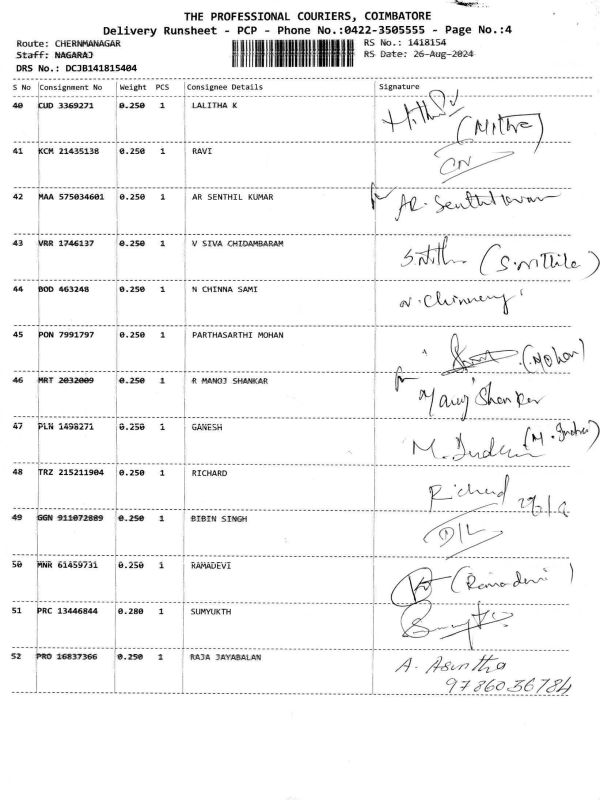 THE PROFESSIONAL COURIERS, COIMBATORE
Delivery Runsheet - PCP - Phone No.:0422-3505555 - Page No.:4
Route: CHERNMANAGAR RS No.: 1418154
Staff: NAGARAJ RS Date: 26-Aug-2024
DRS No.: DCJB141815404
S No Consignment No Weight PCS Consignee Details Signature
40 CUD 3369271 0.250 1 LALITHA K
(Mithra)
41 KCM 21435138 0.250 1 RAVI
42 MAA 575034601 0.250 1 AR SENTHIL KUMAR AR. Senthil
43 VRR 1746137 0.250 1 V SIVA CHIDAMBARAM
44 BOD 463248 0.250 1 N CHINNA SAMI
45 PON 7991797 0.250 1 PARTHASARTHI MOHAN (Mohan)
46 MRT 2032009 0.250 1 R MANOJ SHANKAR Manoj Shanker
47 PLN 1498271 0.250 1 GANESH
48 TRZ 215211904 0.250 1 RICHARD Richard
49 GGN 911072889 0.250 1 BIBIN SINGH D/L
50 MNR 61459731 0.250 1 RAMADEVI (Ramadevi)
51 PRC 13446844 0.280 1 SUMYUKTH
52 PRO 16837366 0.250 1 RAJA JAYABALAN A. Asuntha
9786036784